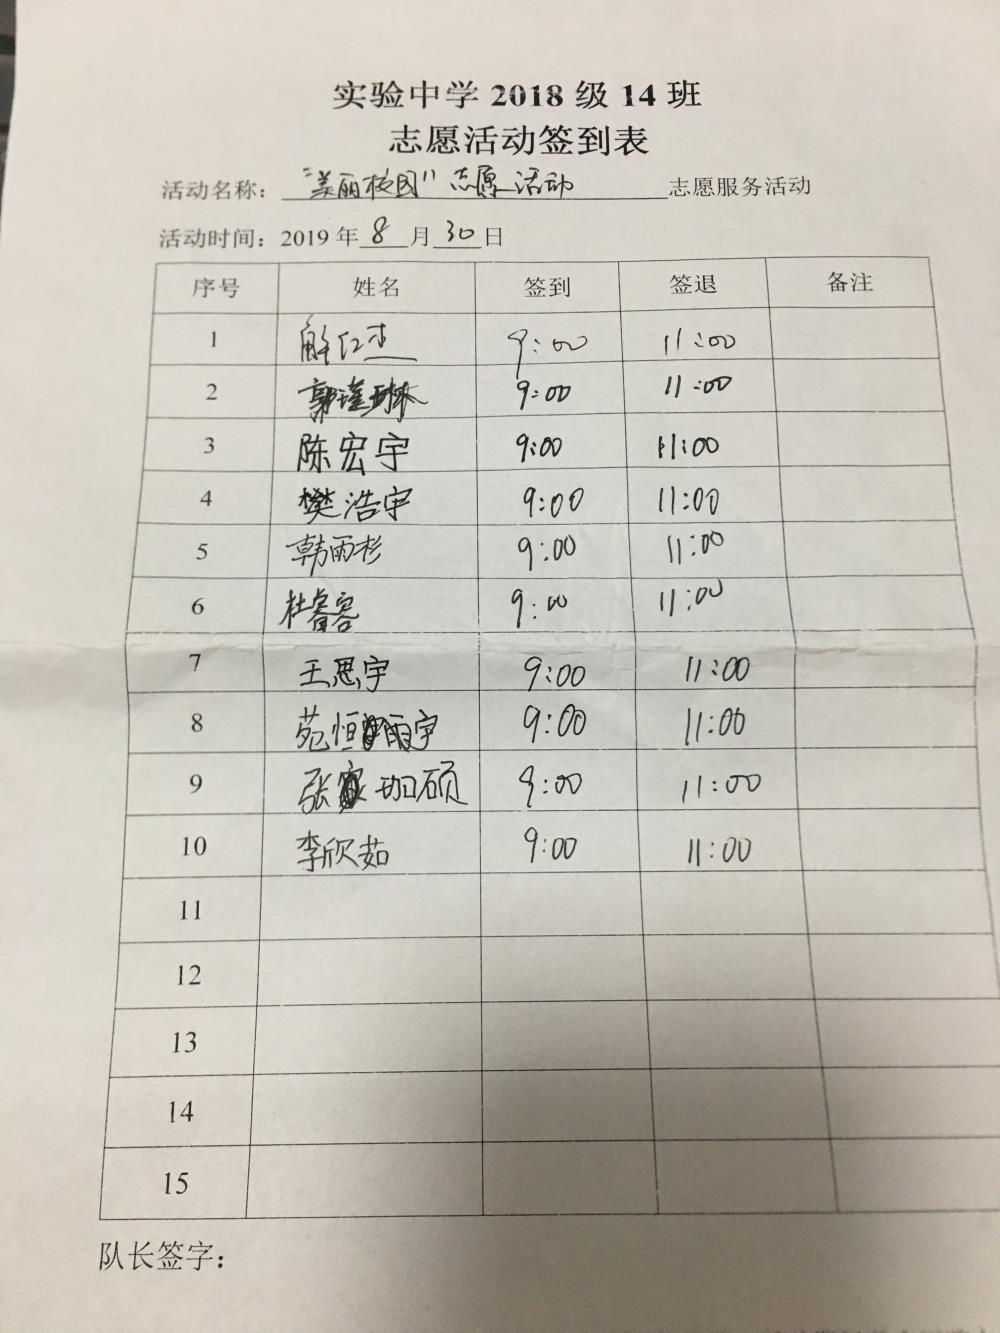 实验中学2018级14班
志愿活动签到表
活动名称："美丽校园"志愿活动志愿服务活动
活动时间：2019年8月30日
序号 姓名 签到 签退 备注
1 解红杰 9:00 11:00
2 郭瑾琳 9:00 11:00
3 陈宏宇 9:00 11:00
4 樊浩宇 9:00 11:00
5 韩雨杉 9:00 11:00
6 杜睿容 9:00 11:00
7 王思宇 9:00 11:00
8 苑恒雨宇 9:00 11:00
9 张珈硕 9:00 11:00
10 李欣茹 9:00 11:00
11
12
13
14
15
队长签字：